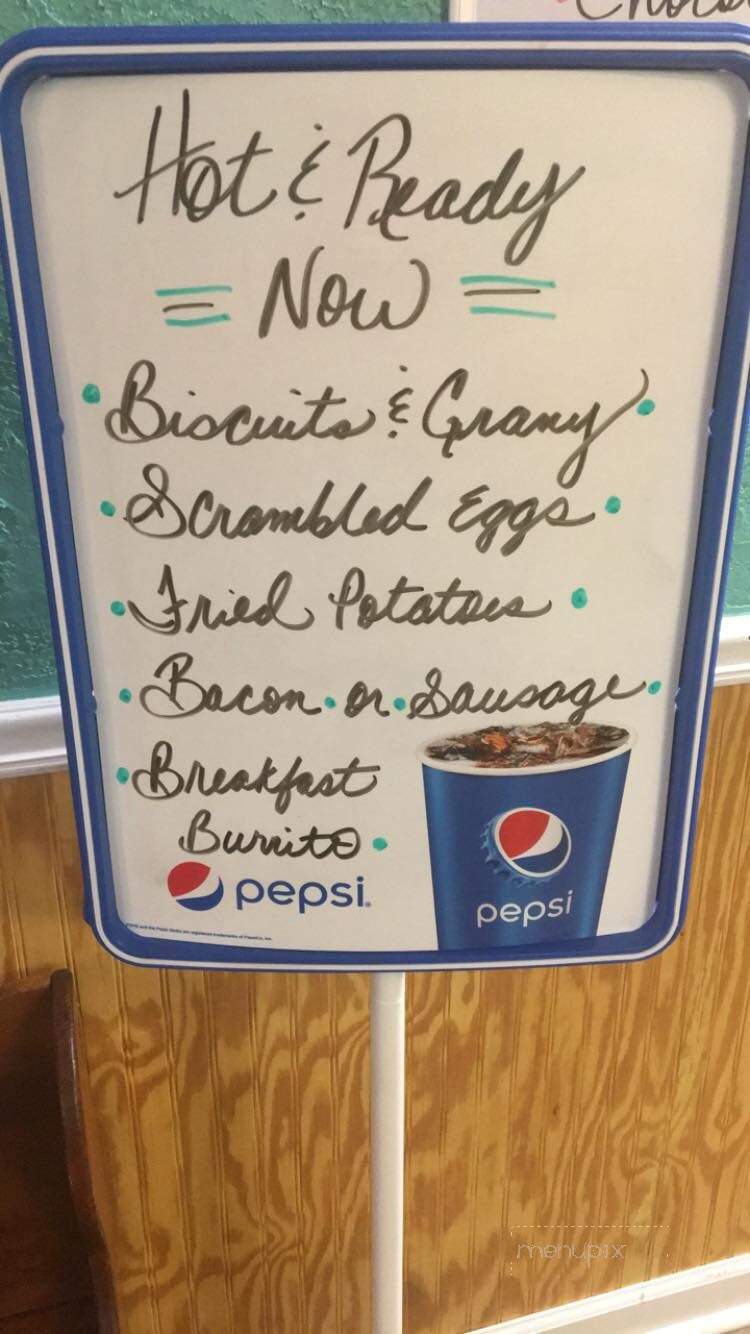 Hot & Ready
= Now =
• Biscuits & Gravy •
• Scrambled Eggs •
• Fried Potatoes •
• Bacon • or • Sausage •
• Breakfast
Burrito •
pepsi
pepsi
menupix